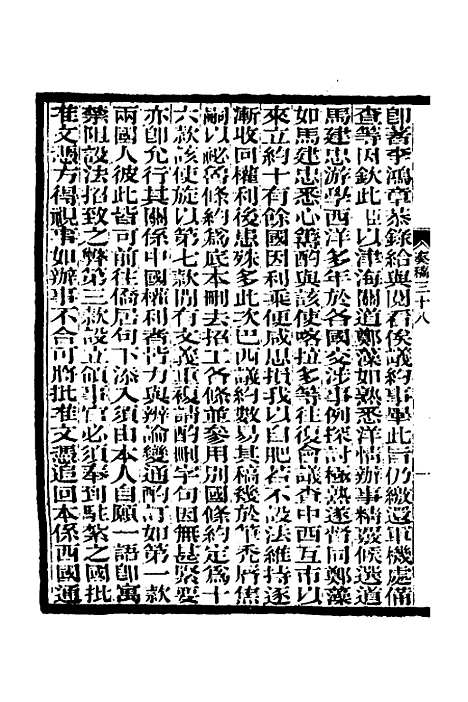 卽著李鴻章恭錄給與閱看俟議約事畢此旨仍繳還軍機處備
查等因欽此臣以津海關道鄭藻如熟悉洋情辦事精覈候選道
馬建忠游學西洋多年於各國交涉事例探討極熟遂督同鄭藻
如馬建忠悉心籌酌與該使喀拉多等往復會議查中西互市以
來立約十有餘國因利乘便咸思損我以自肥若不設法維持逐
漸收回權利後患殊多此次巴西議約數易其稿幾於筆禿脣焦
嗣以祕魯條約爲底本刪去招工各條並參用別國條約定爲十
六款該使旋以第七款閒有文義重複請酌刪字句因無甚緊要
亦卽允行其關係中國權利者皆力與辨論變通酌訂如第一款
兩國人彼此皆可前往僑居句下添入須由本人自願一語卽寓
禁阻設法招致之弊第三款設立領事官必須奉到駐紮之國批
准文憑方得視事如辦事不合可將批准文憑追回本係西國通
奏稿三十八
一